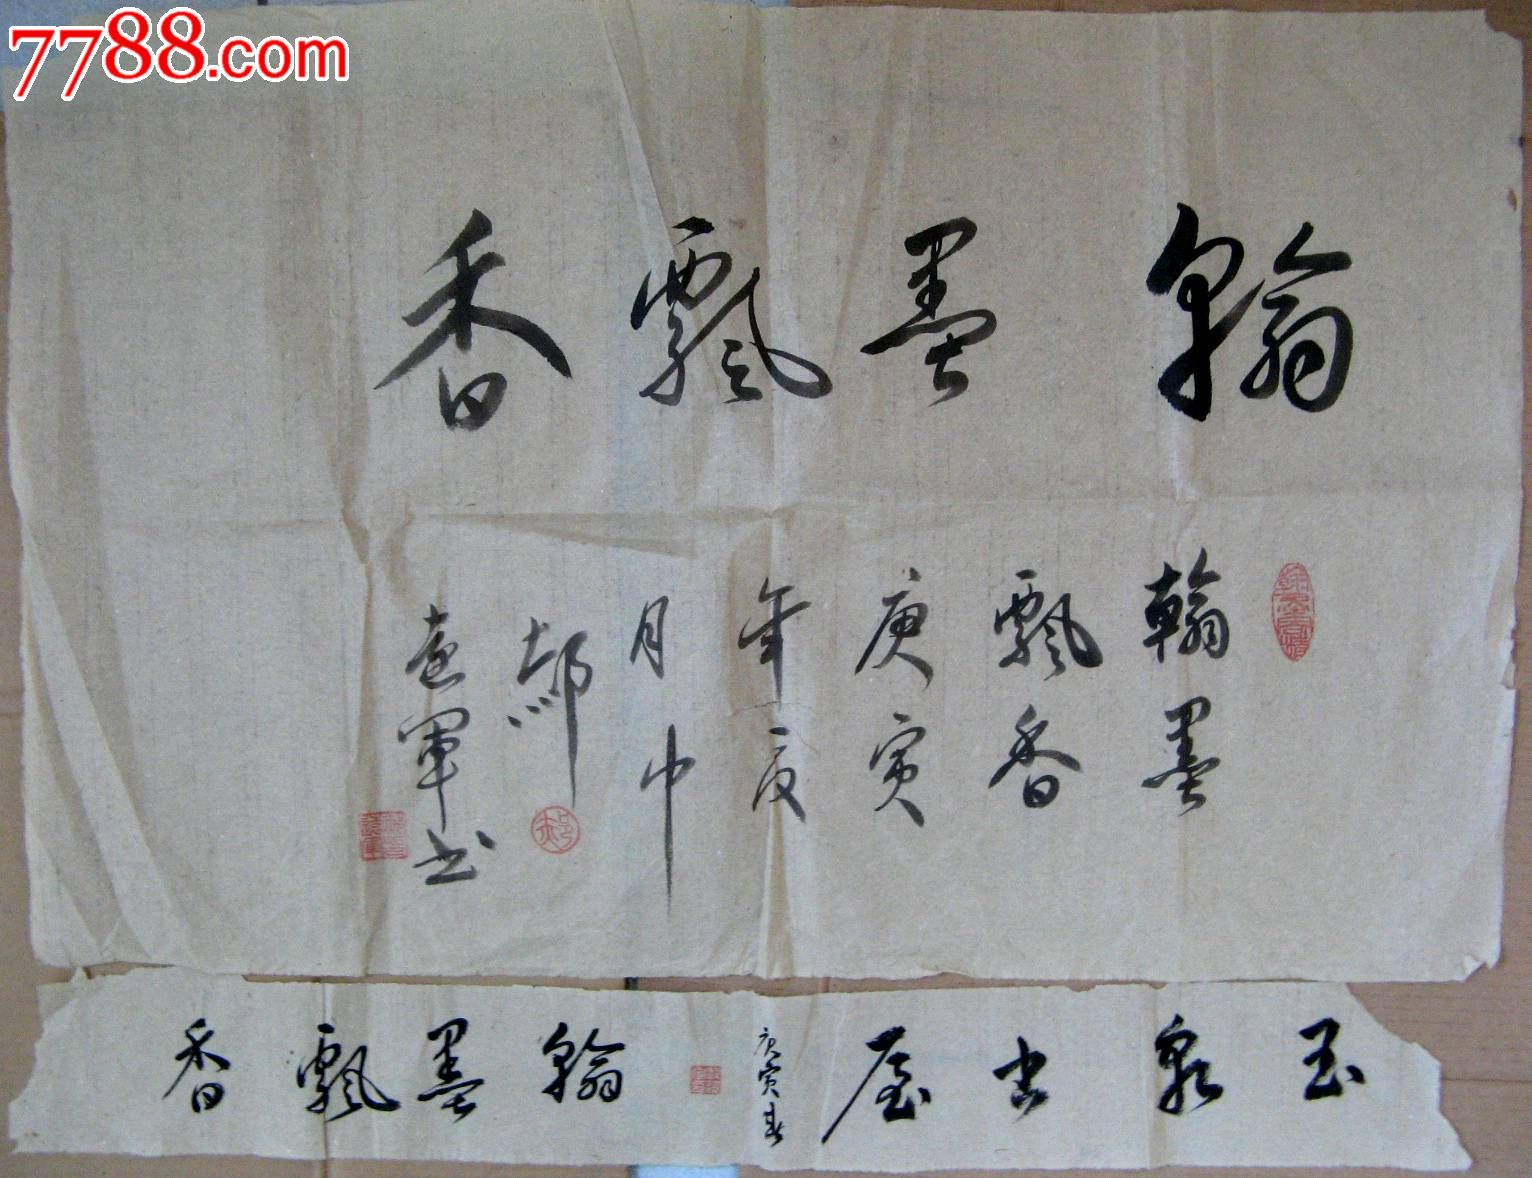 7788.com
翰墨飄香
翰墨
飄香
庚寅
年夏
月中
郝
書
玉泉書屋
庚寅春
翰墨飄香